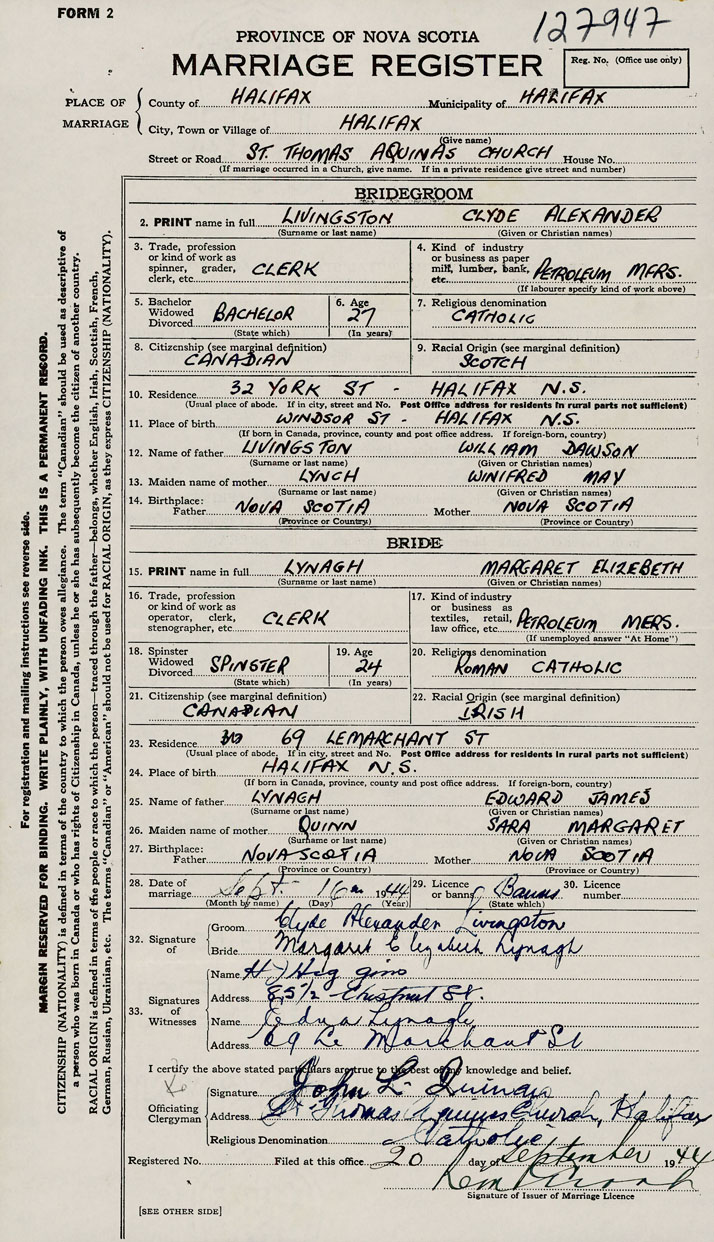 FORM 2
127947
PROVINCE OF NOVA SCOTIA
MARRIAGE REGISTER
Reg. No. (Office use only)
PLACE OF MARRIAGE
County of HALIFAX Municipality of HALIFAX
City, Town or Village of HALIFAX
(Give name)
Street or Road ST. THOMAS AQUINAS CHURCH House No.
(If marriage occurred in a Church, give name. If in a private residence give street and number)
BRIDEGROOM
2. PRINT name in full LIVINGSTON CLYDE ALEXANDER
(Surname or last name) (Given or Christian names)
3. Trade, profession or kind of work as spinner, grader, clerk, etc. CLERK
4. Kind of industry or business as paper mill, lumber, bank, etc. PETROLEUM MFRS.
(If labourer specify kind of work above)
5. Bachelor Widowed Divorced BACHELOR
(State which)
6. Age 27
(In years)
7. Religious denomination
CATHOLIC
8. Citizenship (see marginal definition)
CANADIAN
9. Racial Origin (see marginal definition)
SCOTCH
10. Residence 32 YORK ST - HALIFAX N.S.
(Usual place of abode. If in city, street and No. Post Office address for residents in rural parts not sufficient)
11. Place of birth WINDSOR ST - HALIFAX N.S.
(If born in Canada, province, county and post office address. If foreign-born, country)
12. Name of father LIVINGSTON WILLIAM DAWSON
(Surname or last name) (Given or Christian names)
13. Maiden name of mother LYNCH WINIFRED MAY
(Surname or last name) (Given or Christian names)
14. Birthplace: Father NOVA SCOTIA Mother NOVA SCOTIA
(Province or Country) (Province or Country)
BRIDE
15. PRINT name in full LYNAGH MARGARET ELIZEBETH
(Surname or last name) (Given or Christian names)
16. Trade, profession or kind of work as operator, clerk, stenographer, etc. CLERK
17. Kind of industry or business as textiles, retail, law office, etc. PETROLEUM MFRS.
(If unemployed answer "At Home")
18. Spinster Widowed Divorced SPINSTER
(State which)
19. Age 24
(In years)
20. Religious denomination
ROMAN CATHOLIC
21. Citizenship (see marginal definition)
CANADIAN
22. Racial Origin (see marginal definition)
IRISH
23. Residence 69 LEMARCHANT ST
(Usual place of abode. If in city, street and No. Post Office address for residents in rural parts not sufficient)
24. Place of birth HALIFAX N.S.
(If born in Canada, province, county and post office address. If foreign-born, country)
25. Name of father LYNAGH EDWARD JAMES
(Surname or last name) (Given or Christian names)
26. Maiden name of mother QUINN SARA MARGARET
(Surname or last name) (Given or Christian names)
27. Birthplace: Father NOVA SCOTIA Mother NOVA SCOTIA
(Province or Country) (Province or Country)
28. Date of marriage Sept. 16 1944
(Month by name) (Day) (Year)
29. Licence or banns Banns
(State which)
30. Licence number
32. Signature of
Groom Clyde Alexander Livingston
Bride Margaret Elizabeth Lynagh
33. Signatures of Witnesses
Name
Address 85 1/2 Chestnut St.
Name Edna Lynagh
Address 69 Le Marchant St
I certify the above stated particulars are true to the best of my knowledge and belief.
Officiating Clergyman
Signature John L. Quinan
Address St Thomas Aquinas Church, Halifax
Religious Denomination Catholic
Registered No. Filed at this office 20 day of September 1944
Signature of Issuer of Marriage Licence
[SEE OTHER SIDE]
For registration and mailing instructions see reverse side.
MARGIN RESERVED FOR BINDING. WRITE PLAINLY, WITH UNFADING INK. THIS IS A PERMANENT RECORD.
CITIZENSHIP (NATIONALITY) is defined in terms of the country to which the person owes allegiance. The term "Canadian" should be used as descriptive of
a person who was born in Canada or who has rights of Citizenship in Canada, unless he or she has subsequently become the citizen of another country.
RACIAL ORIGIN is defined in terms of the people or race to which the person—traced through the father—belongs, whether English, Irish, Scottish, French,
German, Russian, Ukrainian, etc. The terms "Canadian" or "American" should not be used for RACIAL ORIGIN, as they express CITIZENSHIP (NATIONALITY).